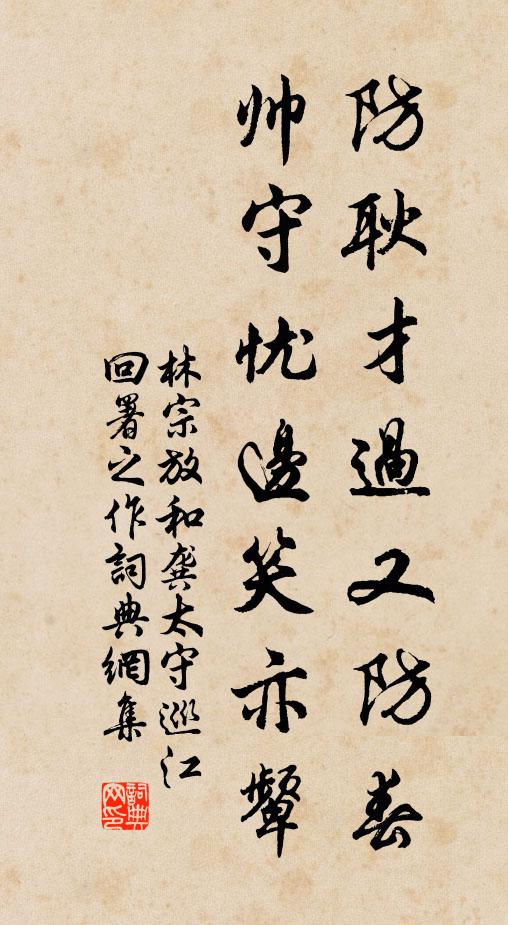 防耿才過又防春
帅守忧邊笑亦顰
林宗放和龔太守巡江
回署之作詞典網集
詞典
网印